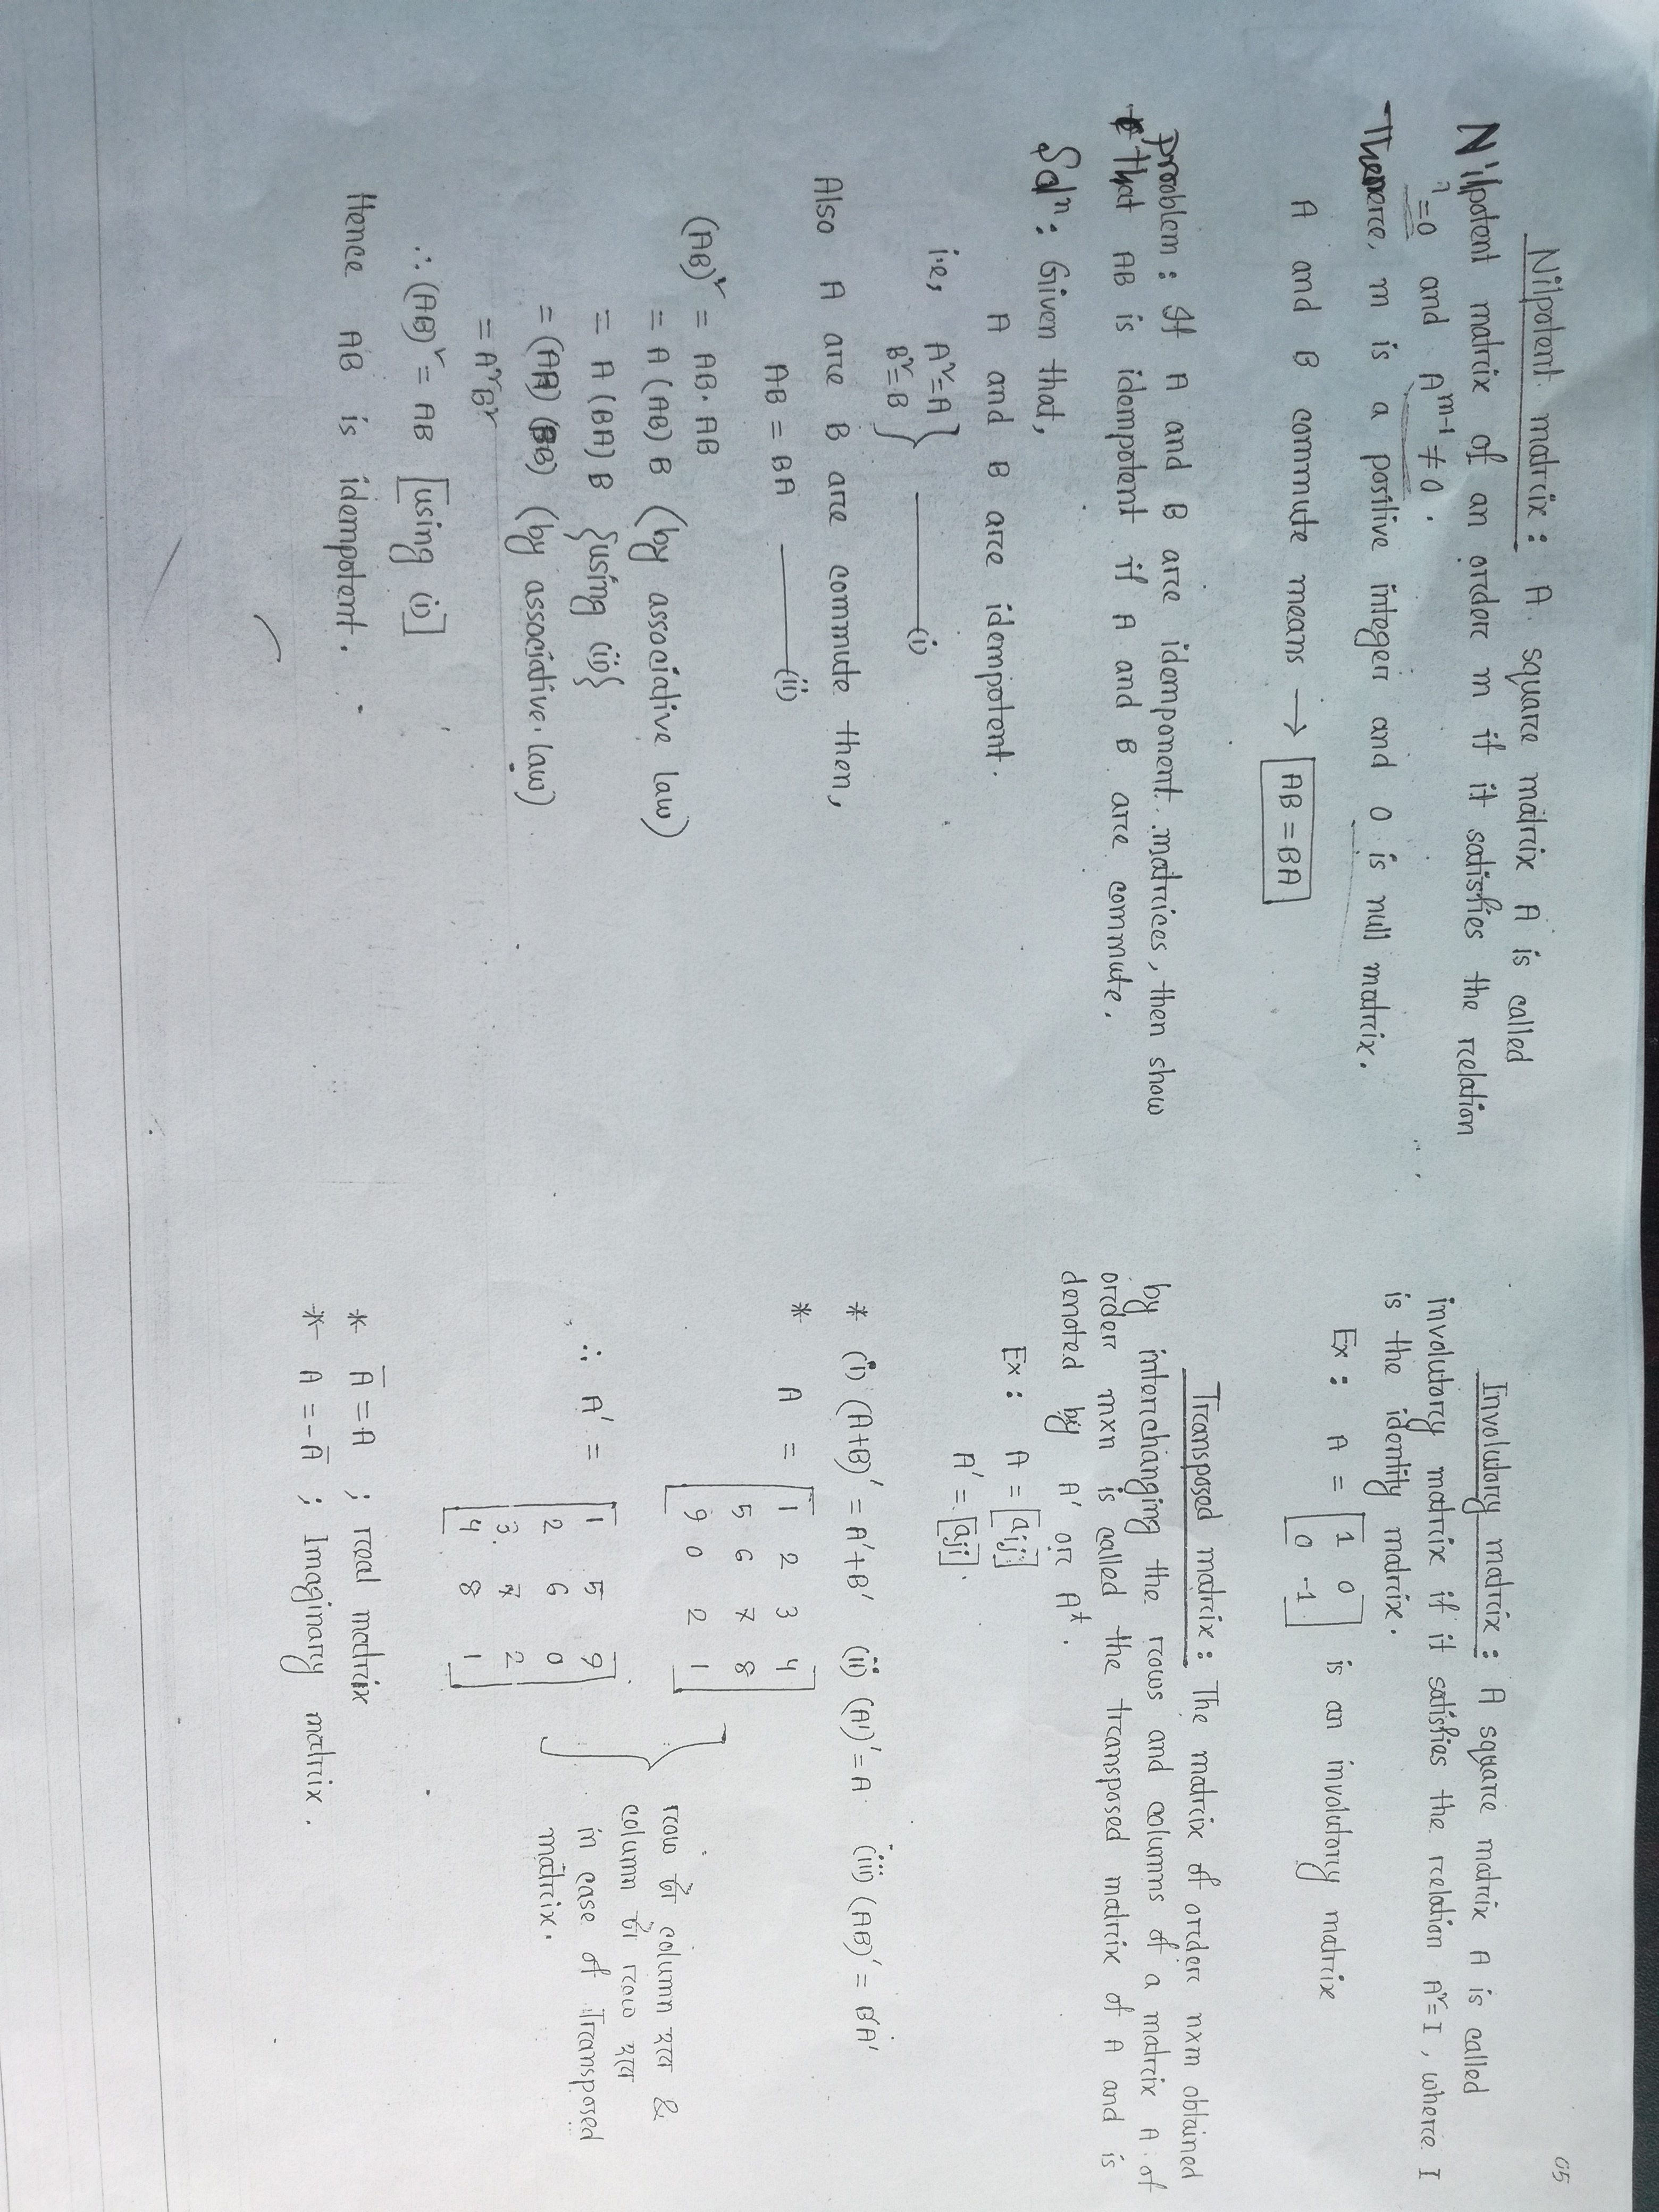 05
Nilpotent matrix : A square matrix A is called
Nilpotent matrix of an order m if it satisfies the relation
=0 and A^{m-1} ≠ 0 .
There, m is a positive integer and 0 is null matrix.
A and B commute means → AB = BA
Problem : If A and B are idemponent matrices, then show
that AB is idempotent if A and B are commute.
Solⁿ : Given that,
A and B are idempotent.
i.e, A²=A
B²=B } ——— (i)
Also A are B are commute then,
AB = BA ——— (ii)
(AB)² = AB· AB
= A (AB) B (by associative law)
= A (BA) B {using (ii)}
= (AA) (BB) (by associative law)
= A²B²
∴ (AB)² = AB [using (i)]
Hence AB is idempotent.
Involutory matrix : A square matrix A is called
involutory matrix if it satisfies the relation A²=I , where I
is the identity matrix.
Ex : A = [1 0
0 -1] is an involutory matrix
Transposed matrix : The matrix of order n×m obtained
by interchanging the rows and columns of a matrix A of
order m×n is called the transposed matrix of A and is
denoted by A' or A^t .
Ex : A = [aij]
A' = [aji]
* (i) (A+B)' = A'+B' (ii) (A')' = A (iii) (AB)' = B'A'
* A = [1 2 3 4
5 6 7 8
9 0 2 1]
∴ A' = [1 5 9
2 6 0
3 7 2
4 8 1]
row টা column হবে &
column টা row হবে
in case of Transposed
matrix.
* Ā = A ; real matrix
* A = -Ā ; Imaginary matrix .